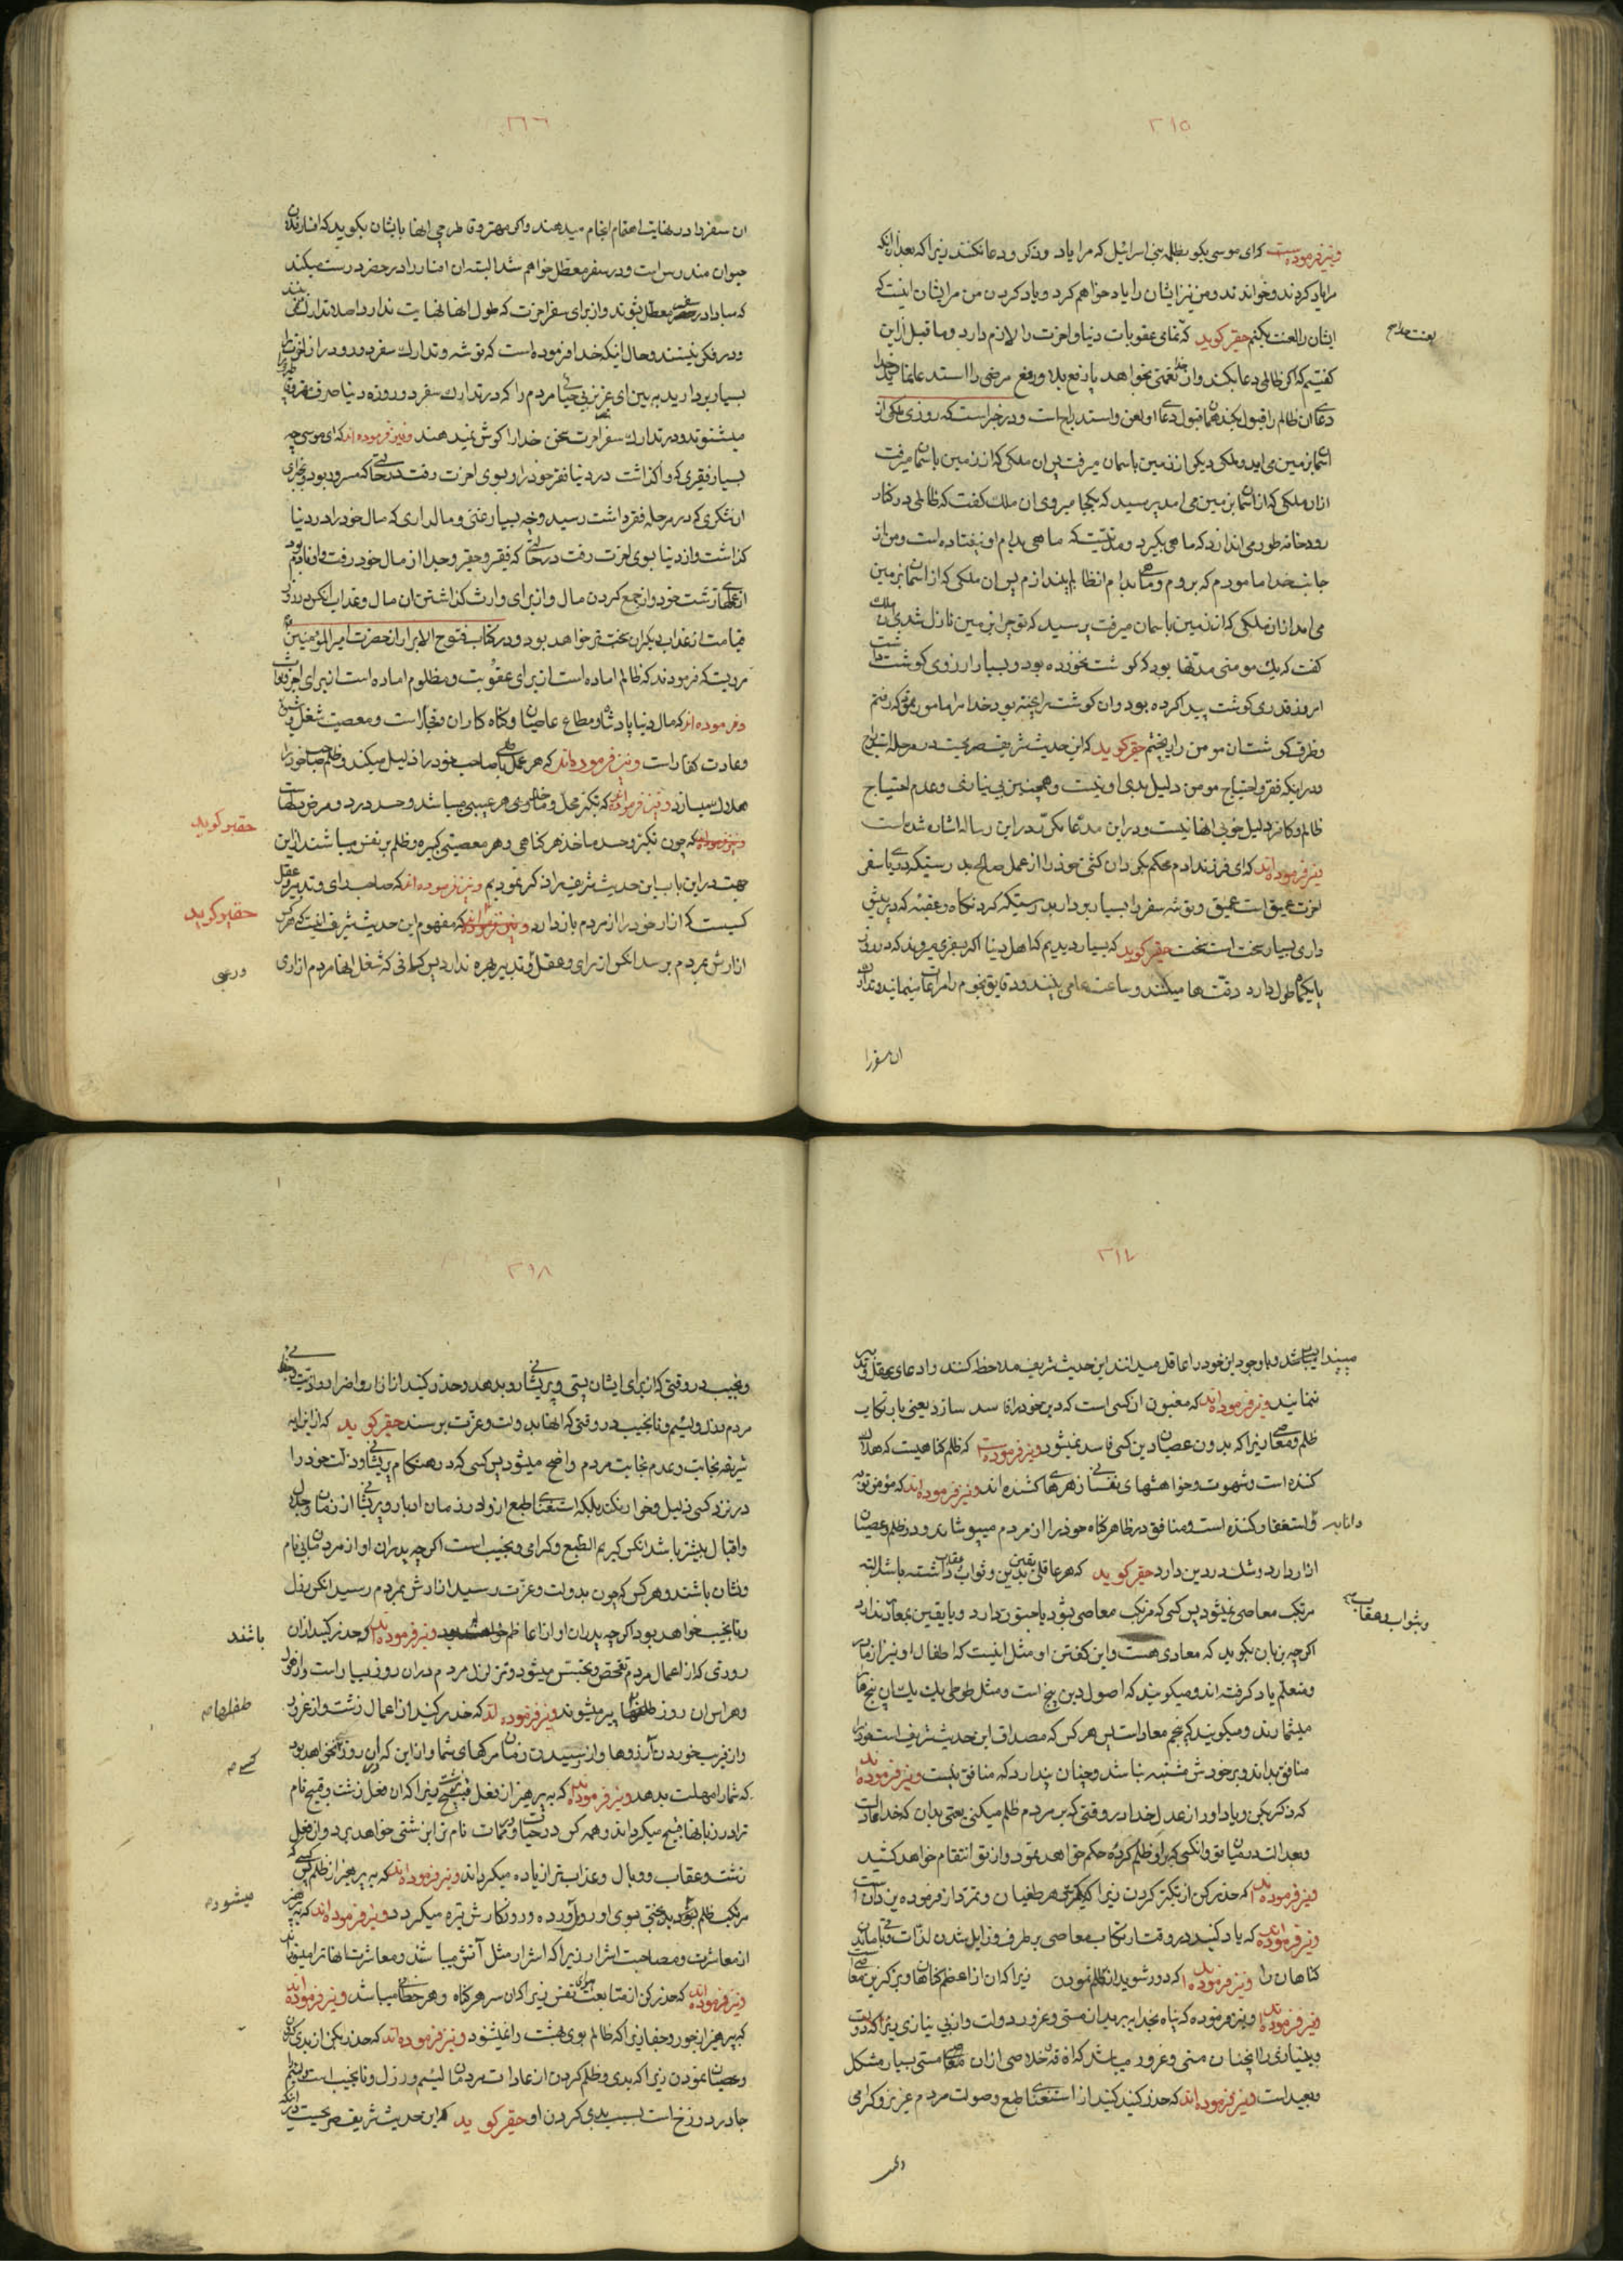 ۲۱۵
و نیز فرموده است که ای موسی بکو بظلمه بنی اسرائیل که مرا یاد و ذکر و دعا نکنند زیرا که بعد از آنکه
مرا یاد کردند و خواندند و من نیز ایشان را یاد خواهم کرد و یاد کردن من مر ایشان اینست که
ایشان را لعنت بکنم حقیر کوید که تمامی عقوبات دنیا و اخرت را لازم دارد و ما قبل ازین
کفتیم که اکر ظالمی دعا بکند و از خدا نعمتی بخواهد یا رفع بلا و رفع مرضی را استدعا نماید خدا
دعای ان ظالم را قبول بکند همان قبول دعا او لعن و استدراج است و در خبر است که روزی ملکی از
اسمان بزمین می اید و ملکی دیکر از زمین باسمان میرفت پس ان ملکی که از زمین باسمان میرفت
ازان ملکی که از اسمان بزمین می امد پرسید که بکجا میروی ان ملک کفت که ظالمی در کنار
رودخانه طور می اندازد که ماهی بکیرد و مدتیست که ماهی بدام او نیفتاده است و من از
جانب خدا مامورم که بروم و ماهی بدام ان ظالم بیندازم پس ان ملکی که از اسمان بزمین
می امد ازان ملکی که از زمین باسمان میرفت پرسید که تو چرا بزمین نازل شدی ان ملک
کفت که یک مومنی مدتها بود که کوشت نخورده بود و بسیار ارزوی کوشت داشت
امروز قدری کوشت پیدا کرده بود و ان کوشت را پخته بود خدا مرا مامور نمود که رفتم
و ظرف کوشت ان مومن را ریختم حقیر کوید که این حدیث شریف صریحست در مرحله استدراج
و در اینکه فقر و احتیاج مومن دلیل بدی او نیست و همچنین بی نیازی و عدم احتیاج
ظالم و کافر دلیل خوبی انها نیست و در این مدعا مکرّر در این رساله اشاره شده است
و نیز فرموده اند که ای فرزند ادم محکم بکردان کشتی خود را از عمل صالح بدرستیکه دریای سفر
اخرت عمیق است عمیق و توشه سفر را بسیار بردار بدرستیکه کردنکاه و عقبه که در پیش
داری بسیار سخت است سخت حقیر کوید که بسیار دیدیم که اهل دنیا اکر بسفری میروند که ده روز
یا یکماه طول دارد دقت ها میکنند و ساعت ها می بینند و دقایق نجوم را مراعات مینمایند و تدارک
ان سفر را
۲۱۶
ان سفر را در نهایت اهتمام انجام میدهند و اکر مهتر و قاطرچی انها بایشان بکوید که افسار فلان
حیوان مندرس است و در سفر معطل خواهم شد البته ان افسار را در حضر درست میکند
که مبادا در سفر معطل بشوند و از برای سفر اخرت که طول انها نهایت ندارد اصلا تدارک نمی بینند
و در فکر نیستند و حال اینکه خدا فرموده است که توشه و تدارک سفر دور و دراز اخرت را
بسیار بردارید به بین ای عزیز بی حیائی مردم را که در تدارک سفر دو روزه دنیا حرف مهتر و قاطرچی را
میشنوند و در تدارک سفر اخرت سخن خدا را کوش نمیدهند و نیز فرموده اند که ای موسی چه
بسیار فقیری که واکذاشت در دنیا فقر خود را و بسوی اخرت رفت در حالتی که مسرور بود و بجزای
ان شکری که در مرحله فقر داشت رسید و چه بسیار غنی و مالداری که مال خود را در دنیا
کذاشت و از دنیا بسوی اخرت رفت در حالتی که فقیر و حقیر و جدا از مال خود رفت و نادم بود
از عملهای زشت خود و از جمع کردن مال و از برای وارث کذاشتن ان مال و عذاب انکس در روز
قیامت از عذاب دیکران سخت تر خواهد بود و در کتاب فتوح الابرار از حضرت امیر المؤمنین
مرویست که فرمودند که ظالم اماده است از برای عقوبت و مظلوم اماده است از برای اجر و ثواب
و فرموده اند که مال دنیا پادشاه و مطاع عاصیان و کناه کاران و فجار است و معصیت شغل و شیوه
و عادت کفار است و نیز فرموده اند که هر عمل باطلی صاحب خود را ذلیل میکند و ظلم صاحب خود را
هلاک میسازد و نیز فرموده اند که تکبر محل و ماخذ هر عیبی میباشد و حسد درد و مرض مهلک است
حقیر کوید
که چون تکبر و حسد ماخذ هر کناهی و هر معصیتی کبیره و ظلم بر نفس میباشند ازین
جهت در این باب این حدیث شریف را ذکر نمودیم و نیز فرموده اند که صاحب رای و تدبیر و عقل
کسیست که ازار خود را از مردم باز دارد
حقیر کوید
که مفهوم این حدیث شریف انست که هر کس
ازارش بمردم برسد انکس از رای و عقل و تدبیر بهره ندارد پس کسانی که شغل انها مردم ازاری
۲۱۷
میباشد و با وجود این خود را عاقل میدانند این حدیث شریف ملاحظه کنند و ادعای عقل و تدبیر
ننمایند و نیز فرموده اند که مغبون ان کسی است که دین خود را فاسد سازد یعنی بارتکاب
ظلم و معاصی زیرا که بدون عصیان دین کسی فاسد نمیشود و نیز فرموده است که ظلم کناهیست که هلاک
کننده است و شهوت و خواهشهای نفسانی زهرهای کشنده اند و نیز فرموده اند که مؤمن توبه
و استغفار کننده است و منافق در ظاهر کناه خود را از مردم میپوشاند و در ظلم و عصیان
ازار دارد و شک در دین دارد حقیر کوید که هر عاقلی یقین بدین و ثواب و عقاب داشته باشد البته
مرتکب معاصی نمیشود پس کسی که مرتکب معاصی بشود یا جنون دارد و یا یقین بمعاد ندارد
و بثواب و عقاب
اکرچه بزبان بکوید که معادی هست و این کفتن او مثل اینست که اطفال او نیز از زبان
و معلم یاد کرفته اند و میکویند که اصول دین پنج است و مثل طوطی یک یک بان پنج را
میشمارند و میکویند که پنجم معاد است پس هر کس که مصداق این حدیث شریف است خود را
منافق بداند و بر خودش مشتبه نباشد و چنان پندارد که منافق نیست و نیز فرموده اند
که ذکر بکن و یاد اور از عدل خدا در وقتی که بر مردم ظلم میکنی یعنی بدان که خدا عادلست
و بعدالت در میان تو و انکسی که بر او ظلم کردی حکم خواهد نمود و از تو انتقام خواهد کشید
و نیز فرموده اند که حذر کن از تکبر کردن زیرا که تکبر سر طغیان و تمرد از فرموده یزدان است
و نیز فرموده اند که یاد کنید در وقت ارتکاب معاصی بر طرف و زایل شدن لذات و باقی ماندن
کناهان را و نیز فرموده اند که دور شوید از ظلم نمودن زیرا که ان از اعظم کناهان و بزرکترین معاصی است
و نیز فرموده اند که پناه بخدا ببرید از مستی و غرور دولت و از بی نیازی زیرا که دولت
و بی نیازی را انچنان مستی و غرور میباشد که افاقه و خلاصی از ان مستی بسیار مشکل
و بعید است و نیز فرموده اند که حذر کنید از استغنای طبع و صولت مردم عزیز و کرامی
و نجیب
۲۱۸
و نجیب در وقتی که از برای ایشان پستی و پریشانی رو بدهد و حذر کنید از ازار و اضرار و اذیت
مردم دون و لئیم و نانجیب در وقتی که انها بدولت و عزت برسند حقیر کوید که از این ایه
شریفه نجابت و عدم نجابت مردم واضح میشود پس کسی که در هنکام پریشانی و ذلت خود را
در نزد کسی ذلیل و خوار نکند بلکه استغنای طبع او در زمان ادبار و پریشانی از زمان دولت
و اقبال بیشتر باشد انکس کریم الطبع و کرامی و نجیب است اکرچه پدران او از مردمان بی نام
و نشان باشند و هر کس که چون بدولت و عزت رسید ازارش بمردم رسید انکس رذل
و نانجیب خواهد بود اکرچه پدران او از اعاظم باشند و نیز فرموده اند که حذر کنید از ان
روزی که از اعمال مردم تفحص و تجسس میشود و تزلزل مردم در ان روز بسیار است و از هول
و هراس ان روز طفلها پیر میشوند و نیز فرموده اند که حذر کنید از اعمال زشت و از غرور
و از فریب خوردن آرزوها و از نرسیدن زمان مرکهای شما و از این که ان روز کسی نخواهد بود
که شما را مهلت بدهد و نیز فرموده اند که به پرهیز از فعل قبیح و زشت زیرا که ان فعل زشت و قبیح نام
ترا در زبانها قبیح میکرداند و همه کس در حیات و ممات نام ترا بزشتی خواهد برد و ان فعل
زشت عقاب و وبال و عذاب ترا زیاده میکرداند و نیز فرموده اند که به پرهیز از ظلم زیرا کسی که
مرتکب ظلم میشود بدبختی بسوی او رو آورده و روزکارش تیره میکردد و نیز فرموده اند که به پرهیز
از معاشرت و مصاحبت اشرار زیرا که اشرار مثل آتش میباشند و معاشرت انها ترا میسوزاند
و نیز فرموده اند که حذر کن از متابعت هوای نفس زیرا که ان سر هر کناه و هر خطائی میباشد و نیز فرموده اند
که بپرهیز از جور و جفا زیرا که ظالم بوی بهشت را نمیشنود و نیز فرموده اند که حذر بکن از بدی کردن
و عصیان نمودن زیرا که بدی و ظلم کردن از عادات مردمان لئیم و رذل و نانجیب است و لئیم
جا در دوزخ است بسبب بدی کردن او حقیر کوید که این حدیث شریف صریحست در اینکه